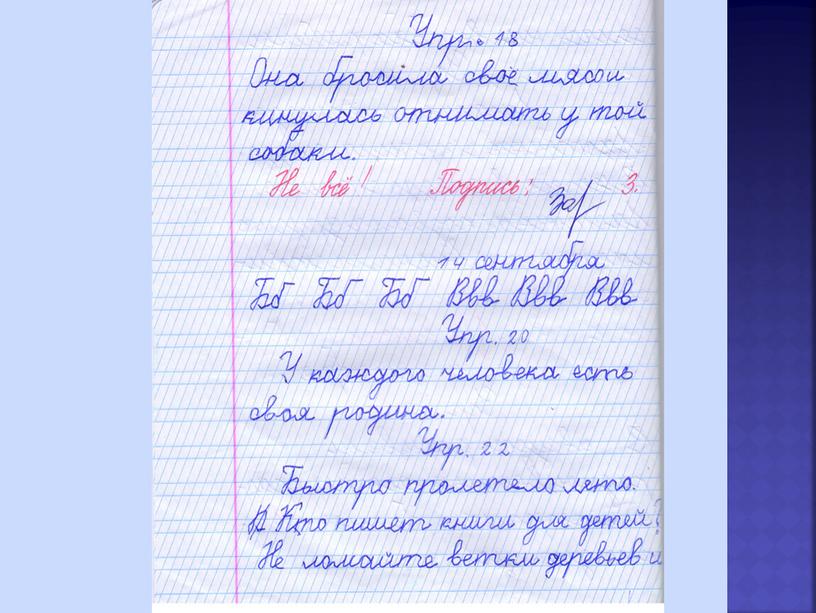 Упр. 18
Она бросила своё мясои
кинулась отнимать у той
собаки.
Не всё! Подпись: 3.
14 сентября
Бб Бб Бб Ввв Ввв Ввв
Упр. 20
У каждого человека есть
своя родина.
Упр. 22
Быстро пролетело лето.
Кто пишет книги для детей?
Не ломайте ветки деревьев и